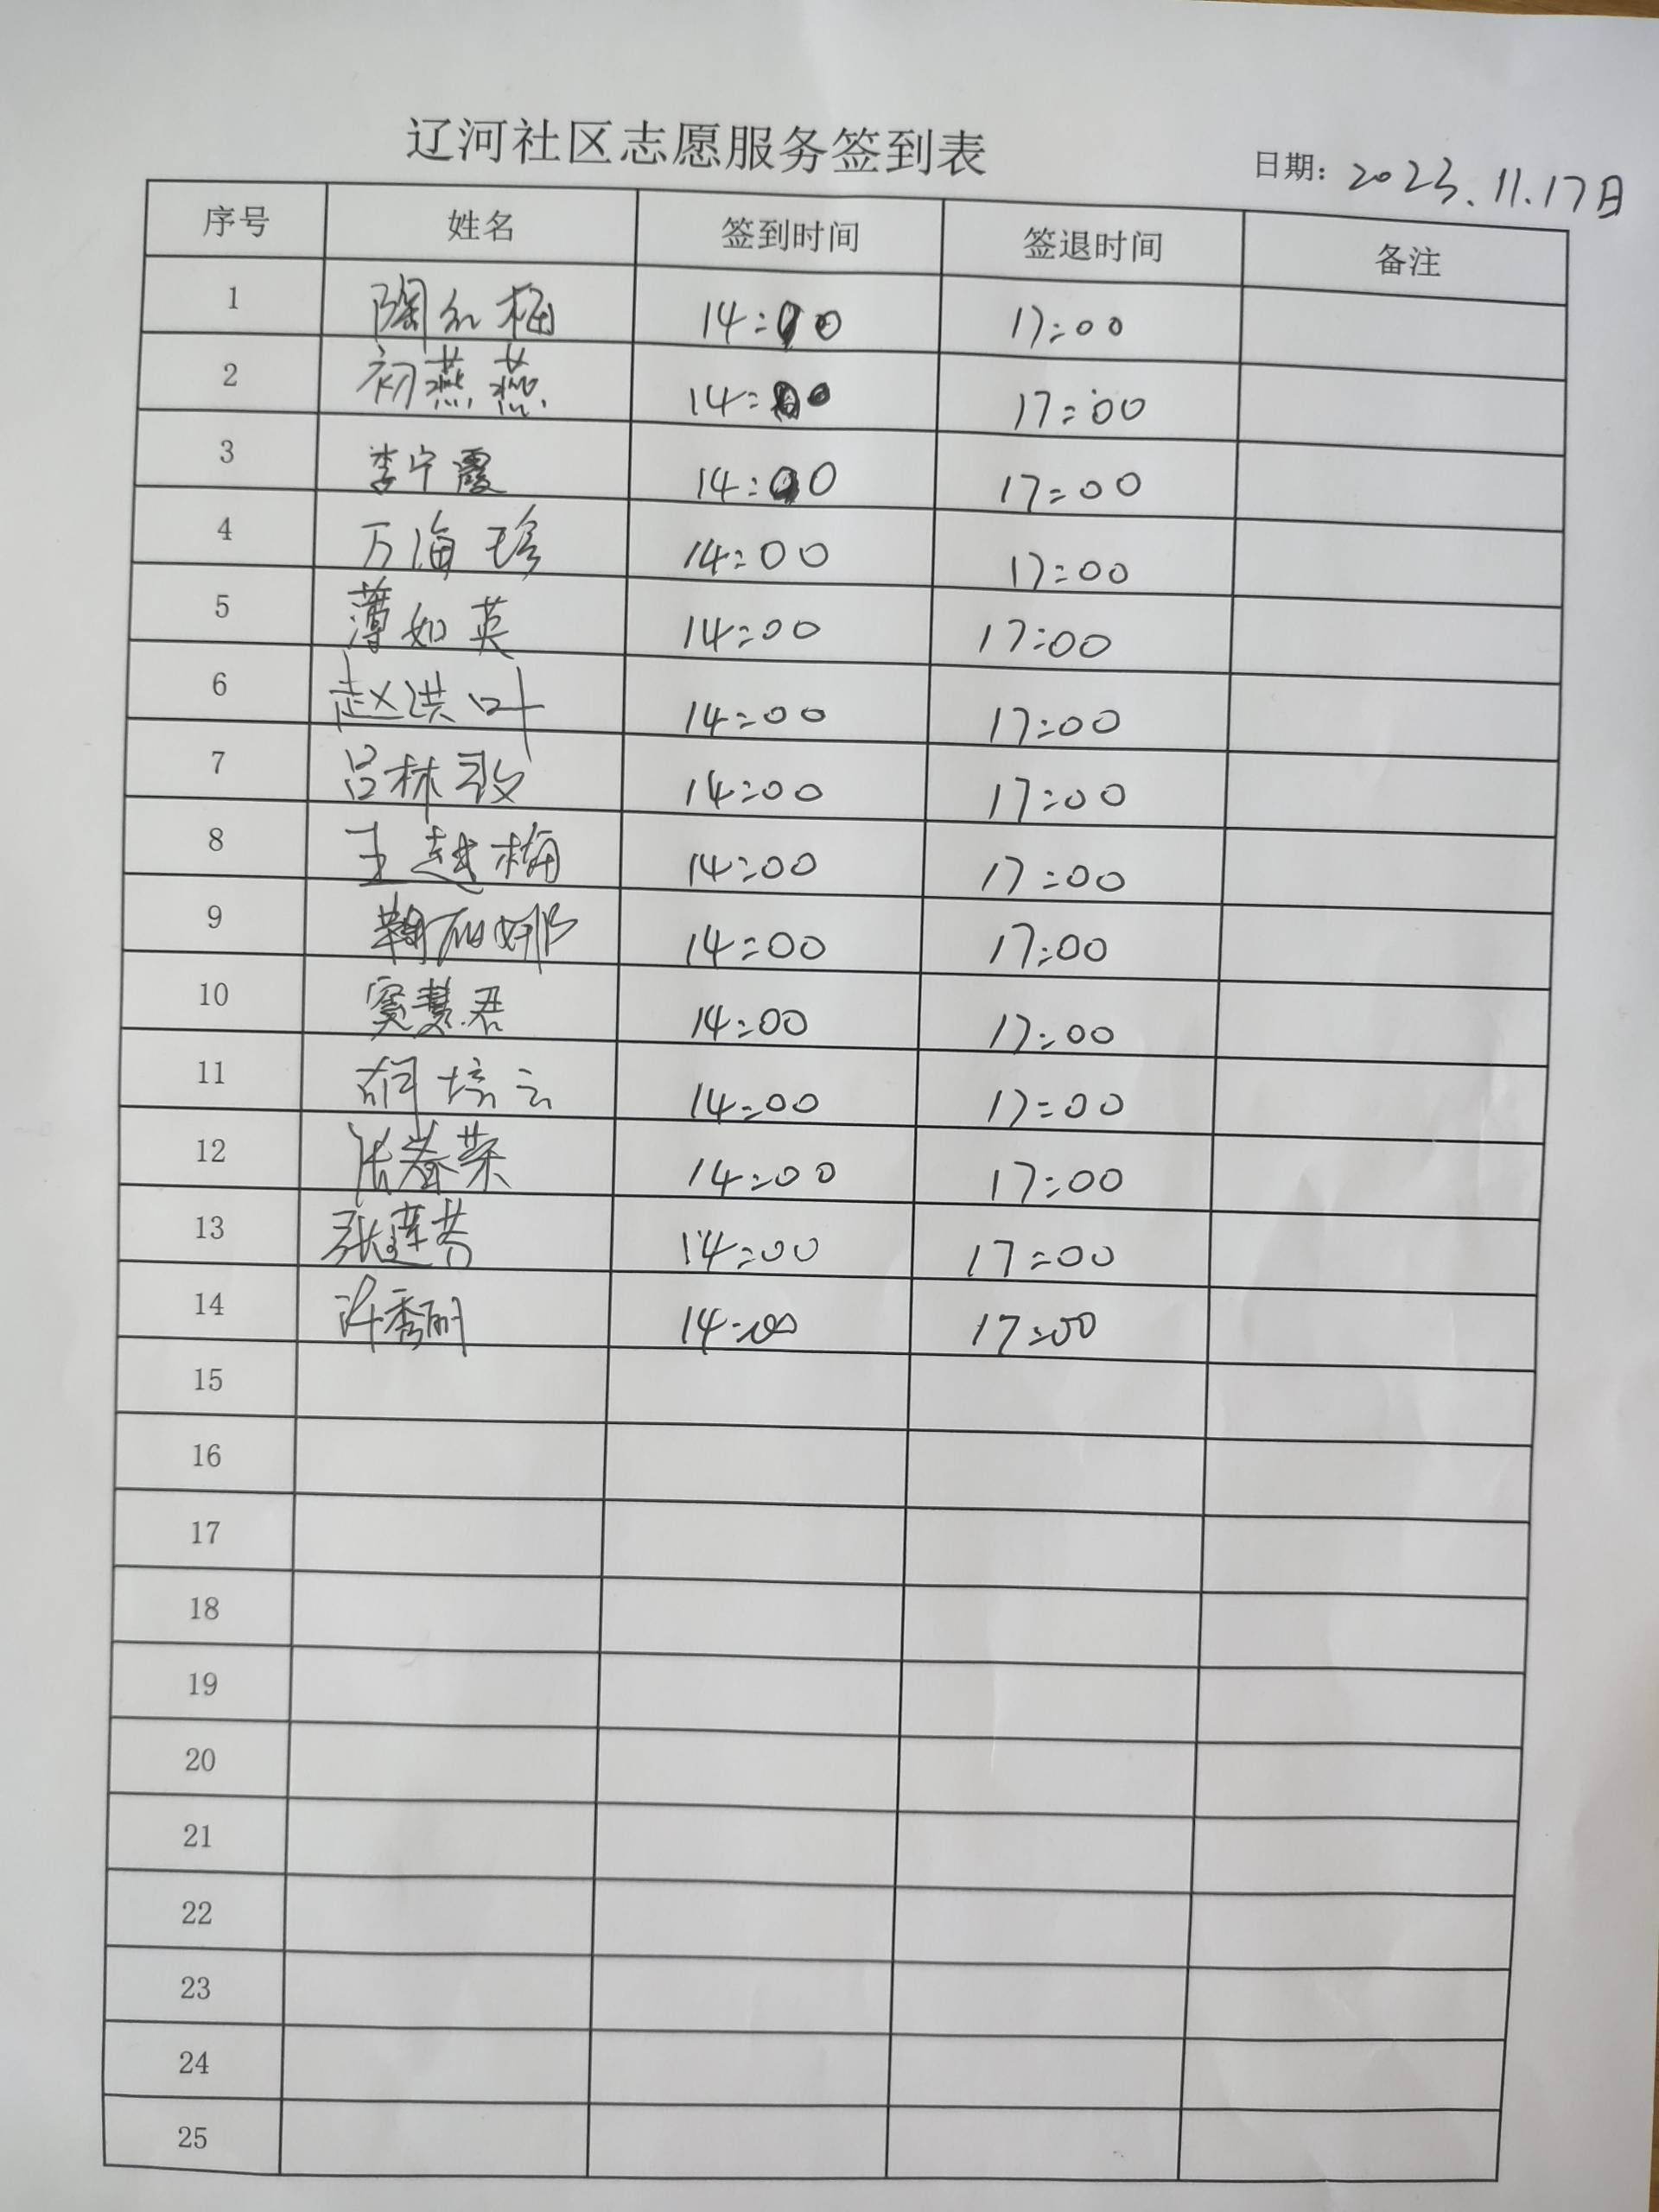 辽河社区志愿服务签到表
日期: 2023.11.17日
序号 姓名 签到时间 签退时间 备注
1 陶红梅 14:00 17:00
2 初燕燕 14:00 17:00
3 李宁霞 14:00 17:00
4 万海珍 14:00 17:00
5 薄如英 14:00 17:00
6 赵洪叶 14:00 17:00
7 吕林 14:00 17:00
8 王越梅 14:00 17:00
9 14:00 17:00
10 窦慧君 14:00 17:00
11 胡培云 14:00 17:00
12 张春荣 14:00 17:00
13 张莲芳 14:00 17:00
14 许秀丽 14:00 17:00
15
16
17
18
19
20
21
22
23
24
25